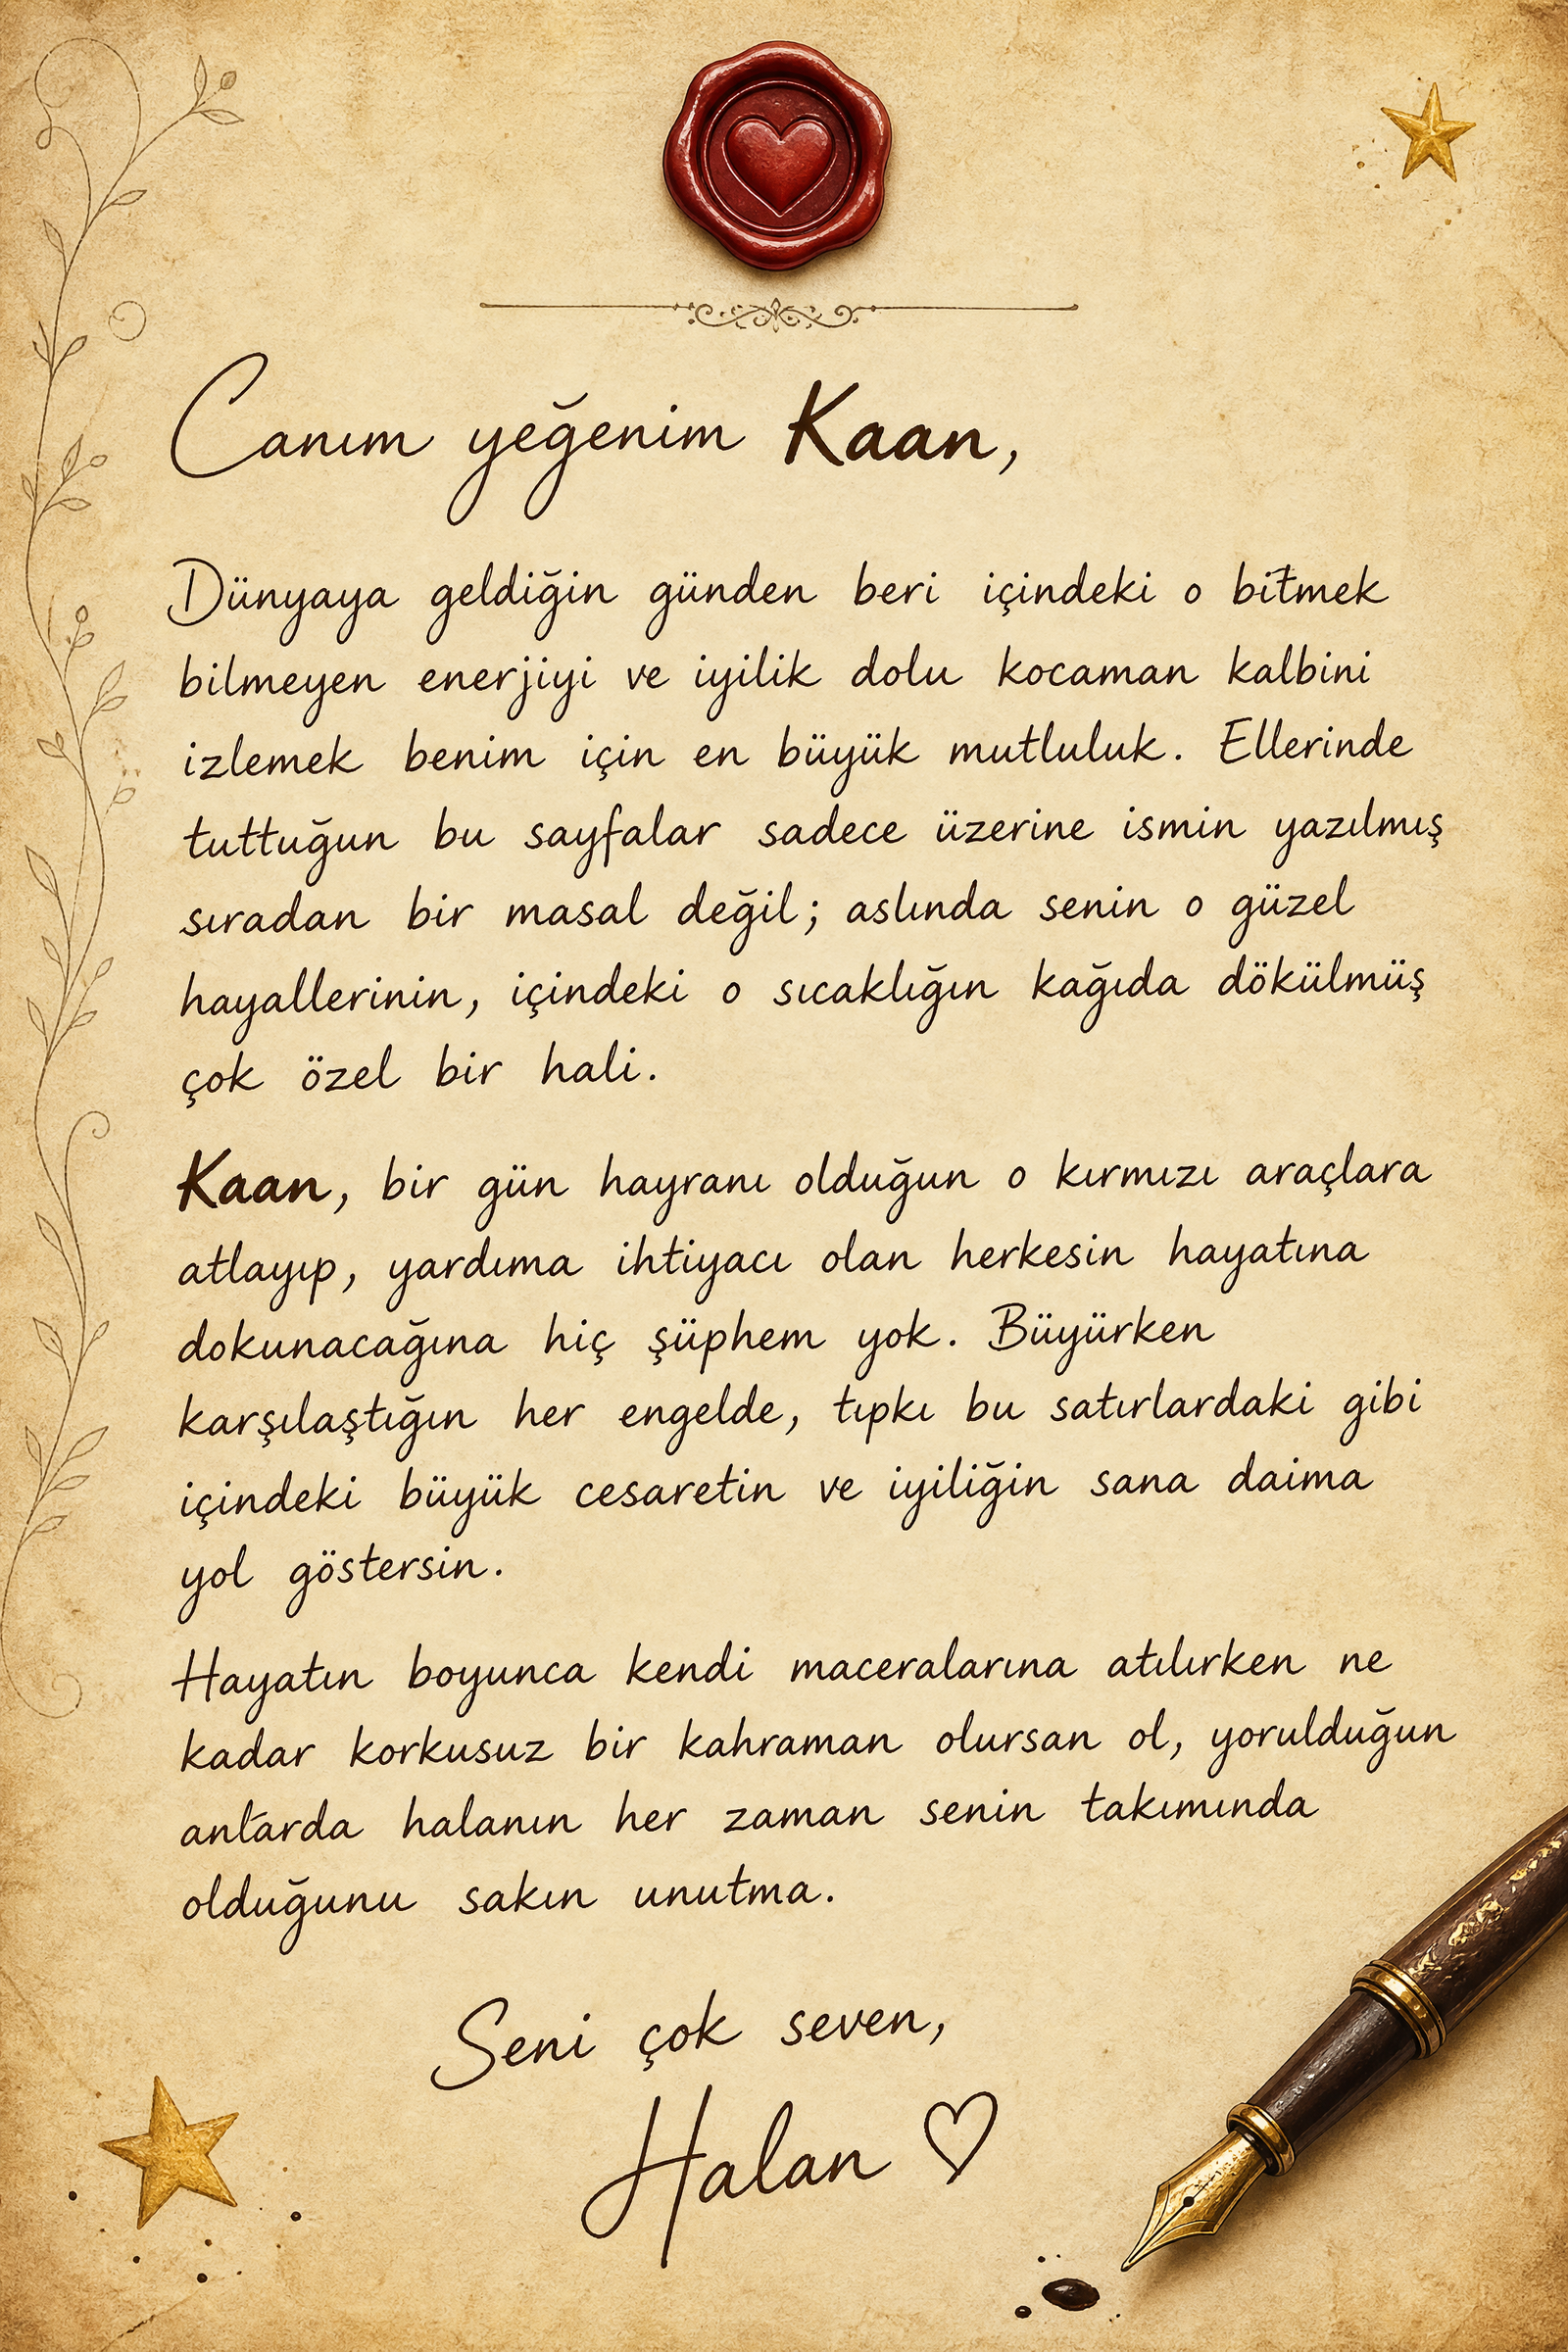 Canım yeğenim Kaan,
Dünyaya geldiğin günden beri içindeki o bitmek
bilmeyen enerjiyi ve iyilik dolu kocaman kalbini
izlemek benim için en büyük mutluluk. Ellerinde
tuttuğun bu sayfalar sadece üzerine ismin yazılmış
sıradan bir masal değil; aslında senin o güzel
hayallerinin, içindeki o sıcaklığın kağıda dökülmüş
çok özel bir hali.
Kaan, bir gün hayranı olduğun o kırmızı araçlara
atlayıp, yardıma ihtiyacı olan herkesin hayatına
dokunacağına hiç şüphem yok. Büyürken
karşılaştığın her engelde, tıpkı bu satırlardaki gibi
içindeki büyük cesaretin ve iyiliğin sana daima
yol göstersin.
Hayatın boyunca kendi maceralarına atılırken ne
kadar korkusuz bir kahraman olursan ol, yorulduğun
anlarda halanın her zaman senin takımında
olduğunu sakın unutma.
Seni çok seven,
Halan ♡